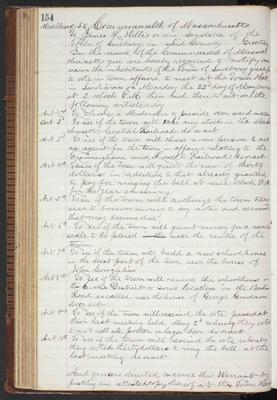 154
Middlesex SS Commonwealth of Massachusetts
To James L. Willis one of the
Town of Sudbury in said County Greeting
In the name of the Commonwealth of Massa
chusetts you are hereby required to notify and
warn the inhabitants of the town of Sudbury
to vote in town affairs, to meet at the Town Hall
in said town on Monday the 22d day of
at 2 o'clock P.M. then and there to act on the
following articles viz
Art 1st To choose a Moderator to preside over said meeting
Art 2d To see if the town will take any stock in the Mass
achusetts Central Railroad do or act
Art 3d To see if the town will choose some person to act
as agent for the town in affairs relating to the
Framingham and Lowell Railroad do or act
Art 4th To see if the town will grant the sum of thirty
dollars in addition to that already granted
to pay for ringing the bell at
for the year
Art 5th To see if the town will authorize the town treas
urer to borrow money to pay notes and
that may become due
Art 6th To see if the town will grant money for a
to be placed near the centre of the
town
Art 7th To see if the town will build a new school house
in the west part of the town near the house of
John Coughlin
Art 8th To see if the town will remove the schoolhouse
in the District to some location on the
Road so called near the house of George Goodnow
do or act
Art 9th To see if the town will rescind the vote passed at
their last meeting held May 2d whereby they vote
do or act
Art 10th To see if the town will rescind the vote whereby
they voted thirty dollars to ring the bell at the
last meeting do or act
And you are directed to serve this Warrant by
posting an attested copy thereof at the Town House